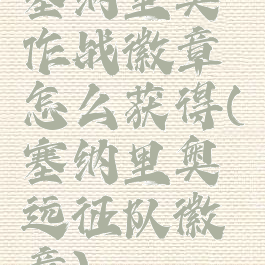 塞纳里奥
作战徽章
怎么获得(
塞纳里奥
远征队徽
章)